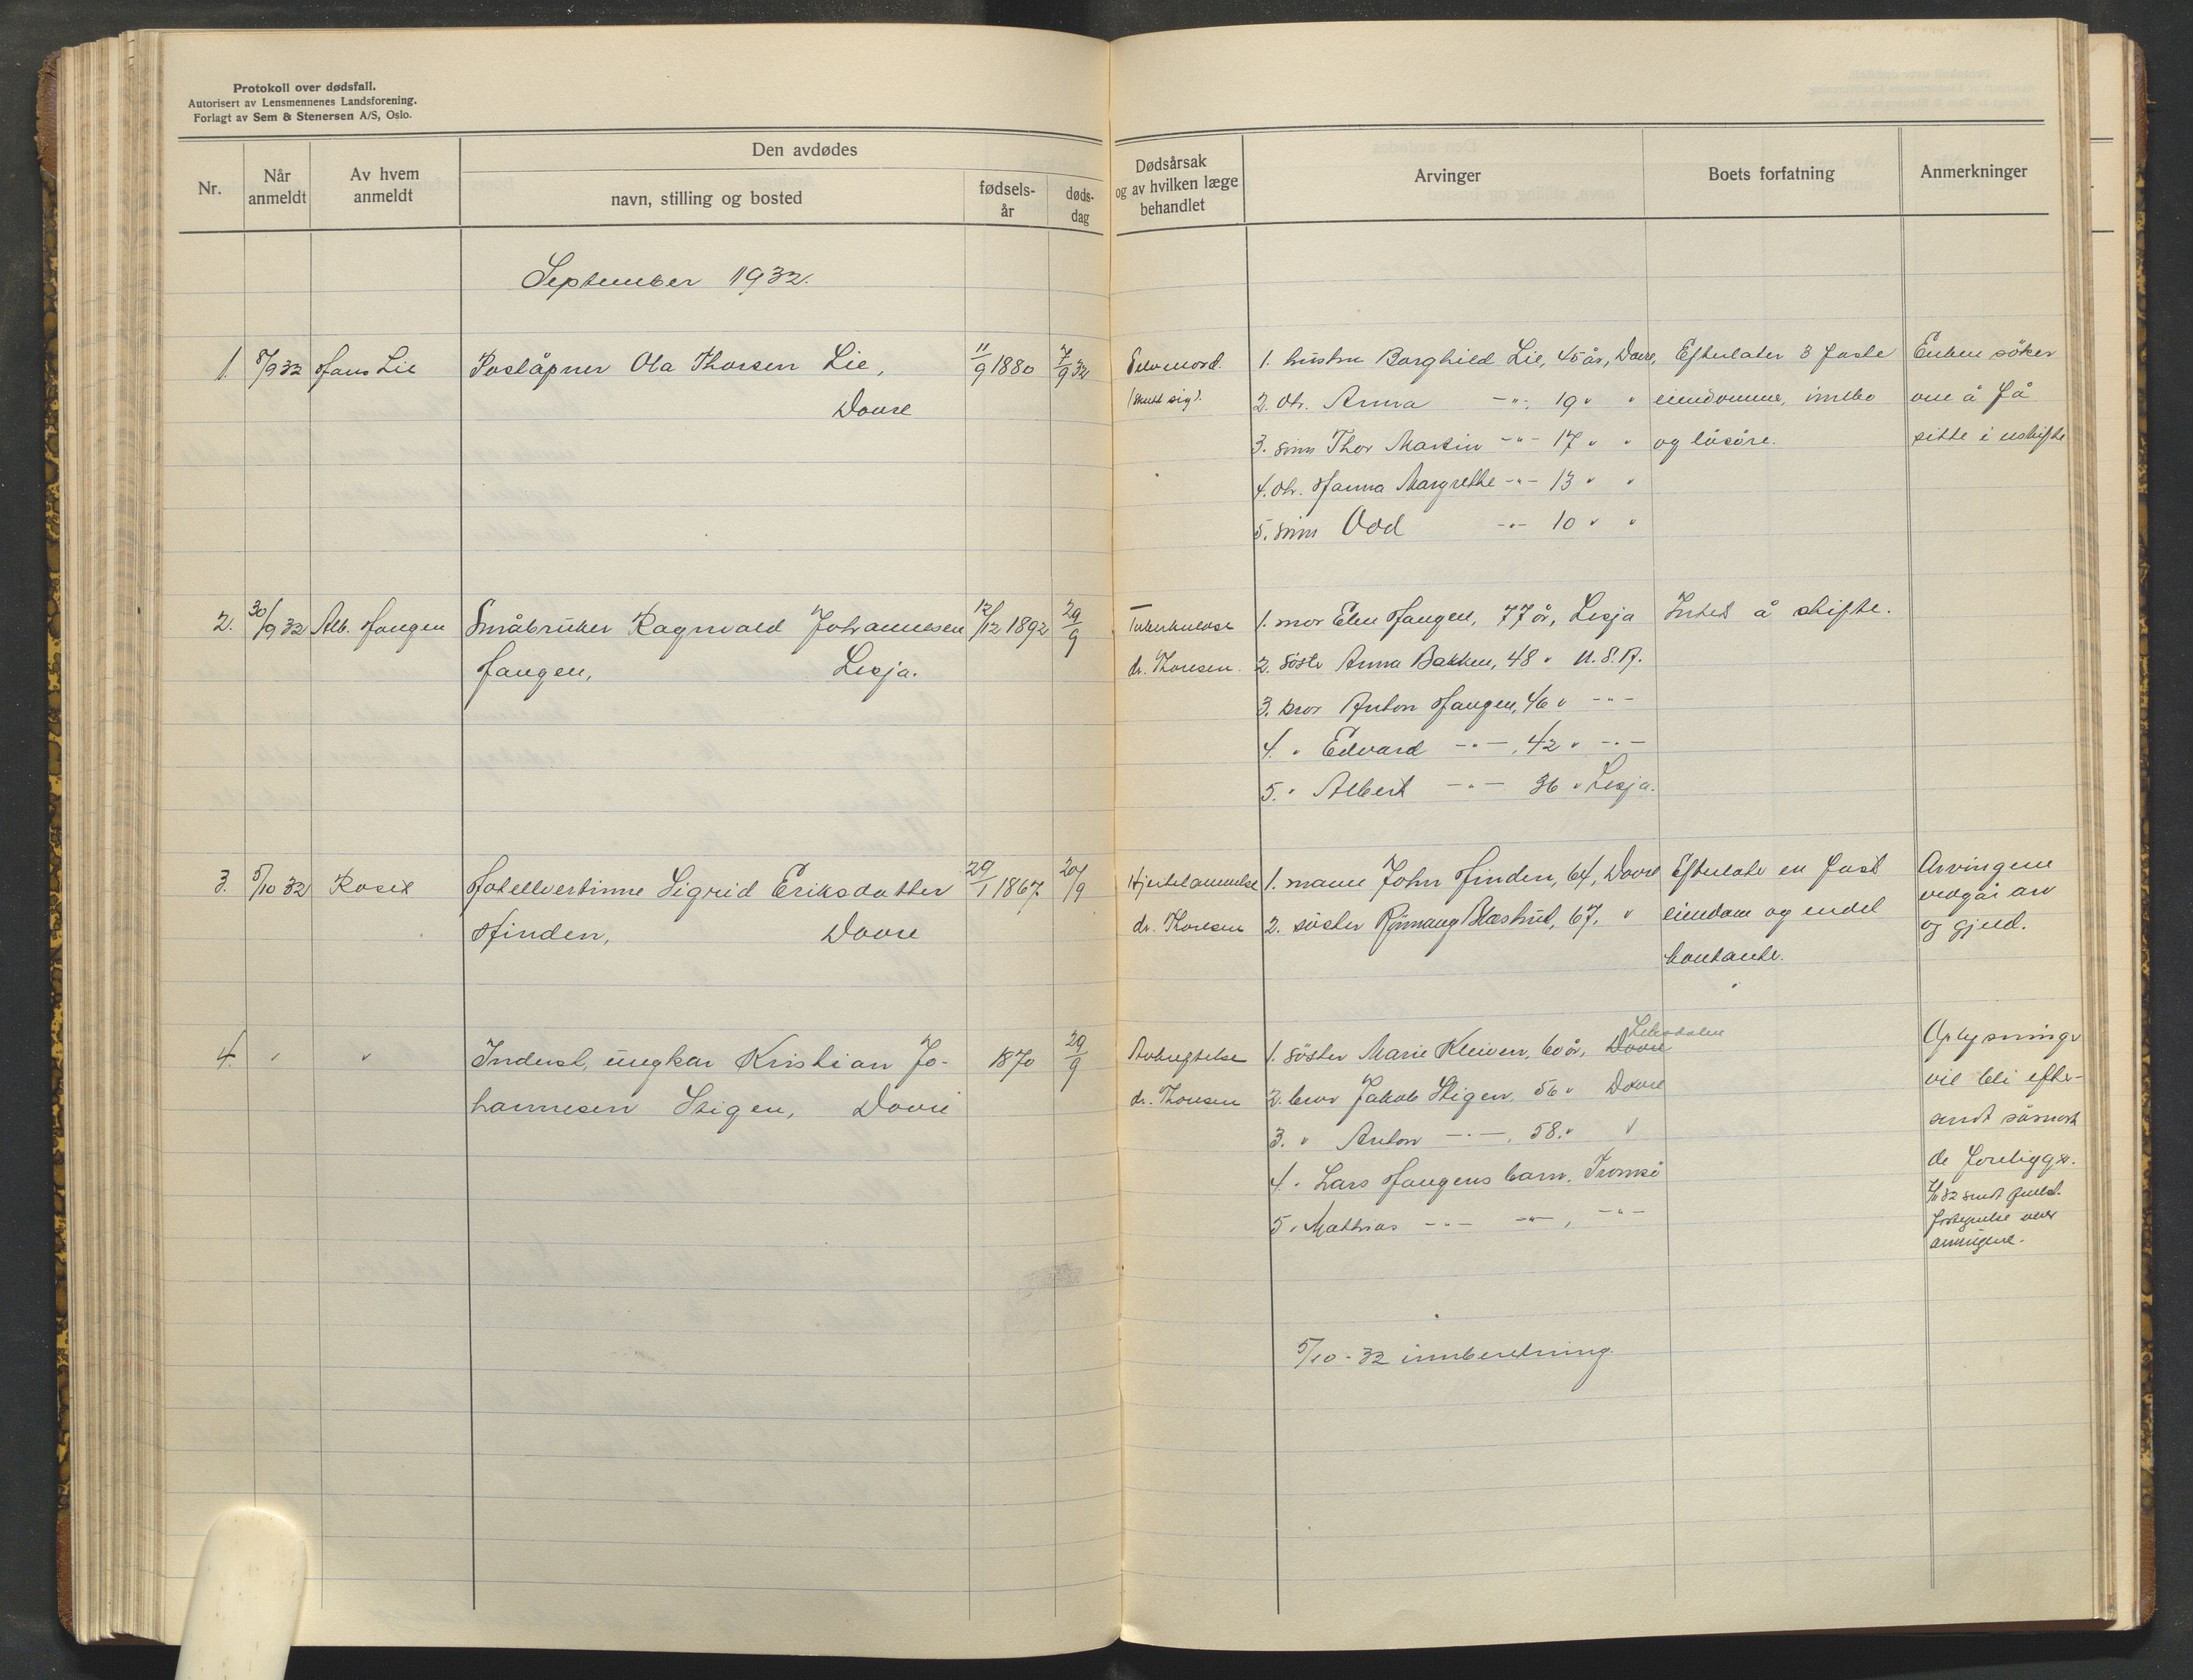 Protokoll over dødsfall.
Autorisert av Lensmennenes Landsforening.
Forlagt av Sem & Stenersen A/S, Oslo.
Nr.
Når anmeldt
Av hvem anmeldt
Den avdødes
navn, stilling og bosted
fødsels-år
døds-dag
Dødsårsak og av hvilken læge behandlet
Arvinger
Boets forfatning
Anmerkninger
September 1932.
1. 8/9 32 Hans Lie Poståpner Ola Thorsen Lie, 11/9 1880 7/9 32 Selvmord. 1. hustru Borghild Lie, 45 år, Dovre, Efterlater 3 faste Enken søker
Dovre (skutt sig). 2. dtr. Anna -"- 19 " " eiendomme, innbo om å få
3. sønn Thor Martin -"- 17 " " og løsøre. sitte i uskifte
4. dtr. Hanna Margrethe -"- 13 " "
5. sønn Odd -"- 10 " "
2. 30/9 32 Alb. Haugen Småbruker Ragnvald Johannesen 12/12 1892 29/9 Tuberkulose 1. mor Elen Haugen, 77 år, Lesja Intet å skifte.
Haugen, Lesja. dr. Thoresen. 2. søster Anna Bakken, 48 " U.S.A.
3. bror Anton Haugen, 46 " -"-
4. " Edvard -"-, 42 " -"-
5. " Albert -"- 36 " Lesja.
3. 5/10 32 Hotellvertinne Sigrid Eriksdatter 29/1 1867 20/9 Hjertelammelse 1. mann John Hinden, 64, Dovre Efterlate en fast Arvingene
Hinden, Dovre dr. Thoresen 2. søster 67, " eiendom og endel vedgår arv
kontante. og gjeld.
4. " " Inderst, ungkar Kristian Jo- 1870 29/9 1. søster Marie Kleiven, 60 år, Dovre Oplysninger
hannesen Stigen, Dovre dr. Thoresen 2. bror Jakob Stigen, 56 " Dovre vil bli efter-
3. " Anton -"-, 58 " " sendt såsnart
4. " Lars Haugens barn, Tromsø de foreligger.
5. " Mathias -"- -"-, -"- 32 sendt
fortegnelse over
arvingene.
5/10-32 innberetning.